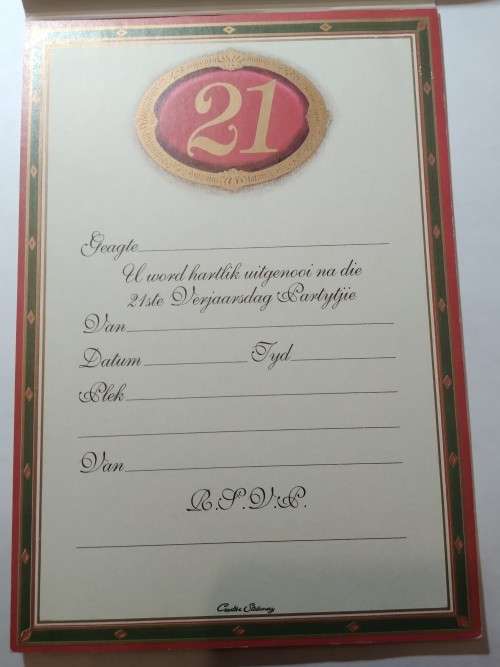 21
Geagte
U word hartlik uitgenooi na die
21ste Verjaarsdag Partytjie
Van
Datum Tyd
Plek
Vàn
R.S.V.P.